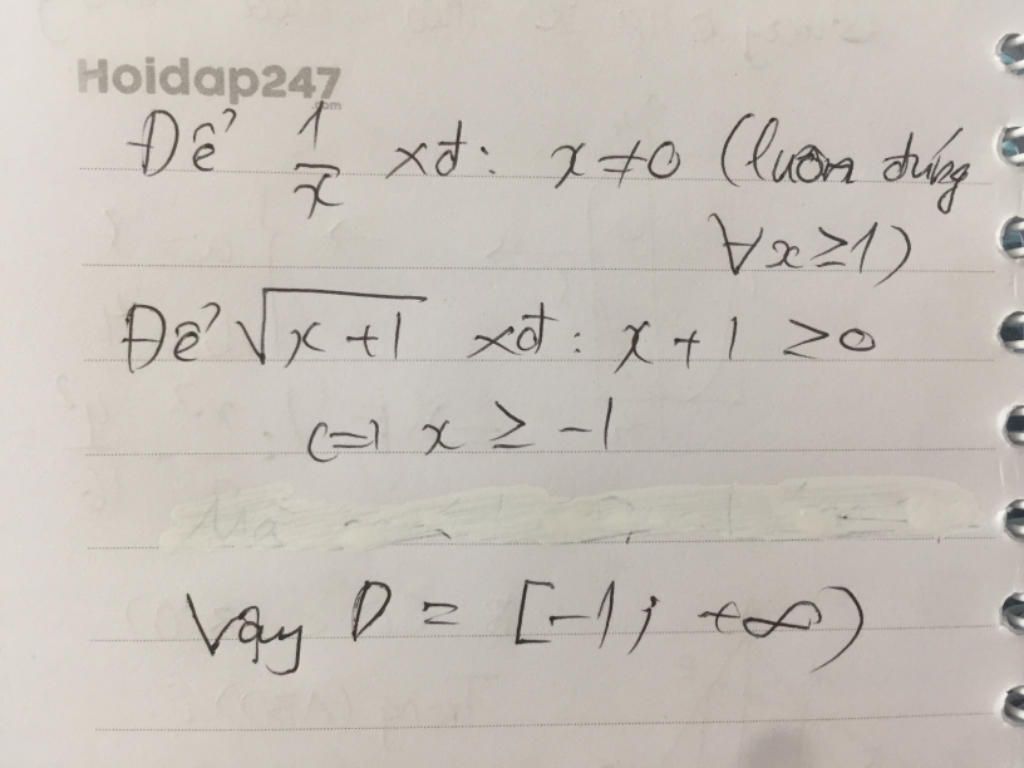 Hoidap247
.com
Để 1/x xđ: x≠0 (luôn đúng
∀x≥1)
Để √(x+1) xđ: x+1 ≥0
<=> x ≥ -1
Vậy D = [-1; +∞)